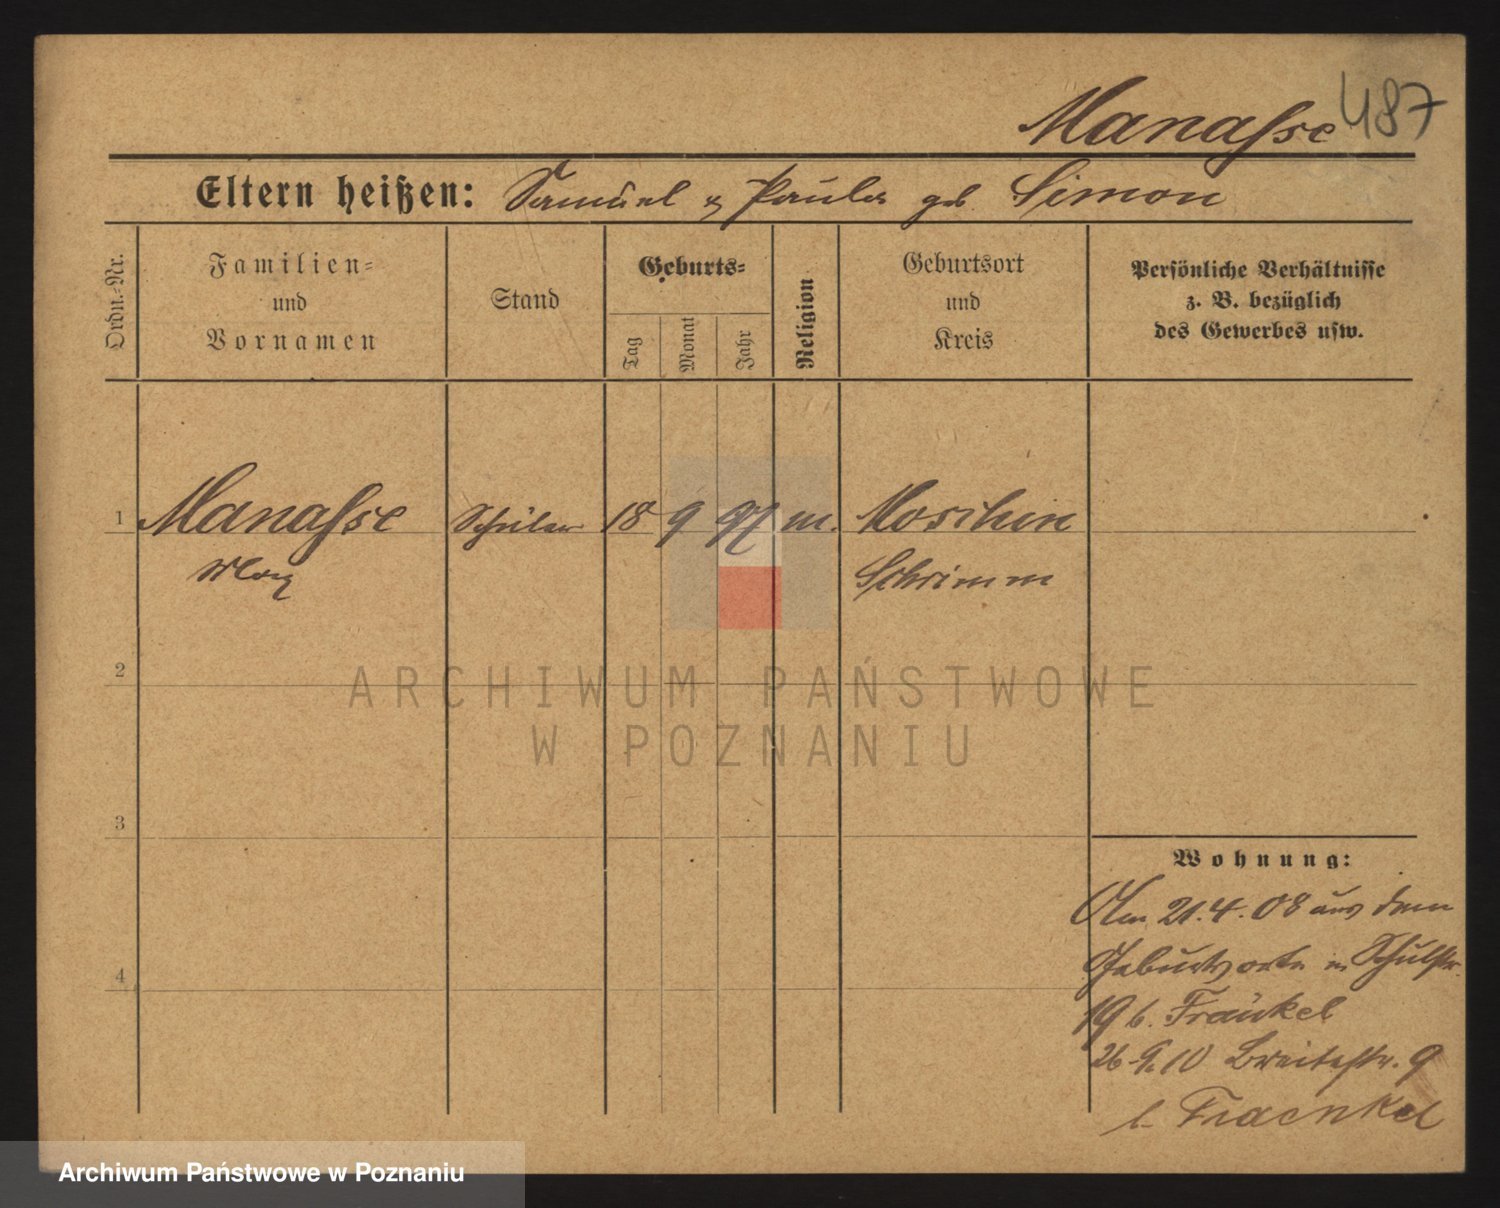 487
Manasse
Eltern heißen: Samuel & Paula geb. Simon
Ordn.-Nr.
Familien-
und
Vornamen
Stand
Geburts-
Tag
Monat
Jahr
Religion
Geburtsort
und
Kreis
Persönliche Verhältnisse
z. B. bezüglich
des Gewerbes usw.
1 Manasse Schüler 18 9 97 m. Moschin
Max Schrimm
2
ARCHIWUM PAŃSTWOWE
W POZNANIU
3
Wohnung:
Am 21.4.08 aus dem
Geburtsorte n Schulstr.
19 b. Fränkel
4
26.9.10 Breitestr. 9
b. Fraenkel
Archiwum Państwowe w Poznaniu